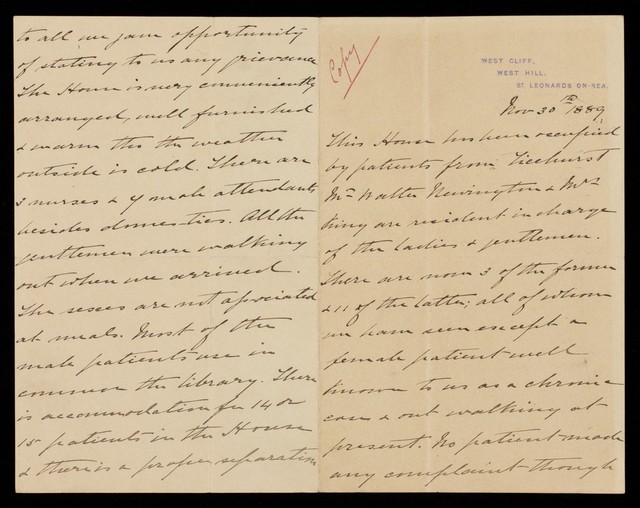 Copy
WEST CLIFF,
WEST HILL,
ST LEONARDS ON-SEA.
Nov 30th 1889
This House has been occupied
by patients from Ticehurst
Mr Walter Newington & Mrs
King are resident in charge
of the ladies & gentlemen.
There are now 3 of the former
& 11 of the latter; all of whom
we have seen except a
female patient well
known to us as a chronic
case & out walking at
present. No patient made
any complaint though
to all we gave opportunity
of stating to us any grievance
The House is very conveniently
arranged, well furnished
& warm tho the weather
outside is cold. There are
3 nurses & 4 male attendants
besides domestics. All the
gentlemen were walking
out when we arrived.
The sexes are not associated
at meals. Most of the
male patients use in
common the library. There
is accommodation for 14 or
15 patients in the House
& there is a proper separation